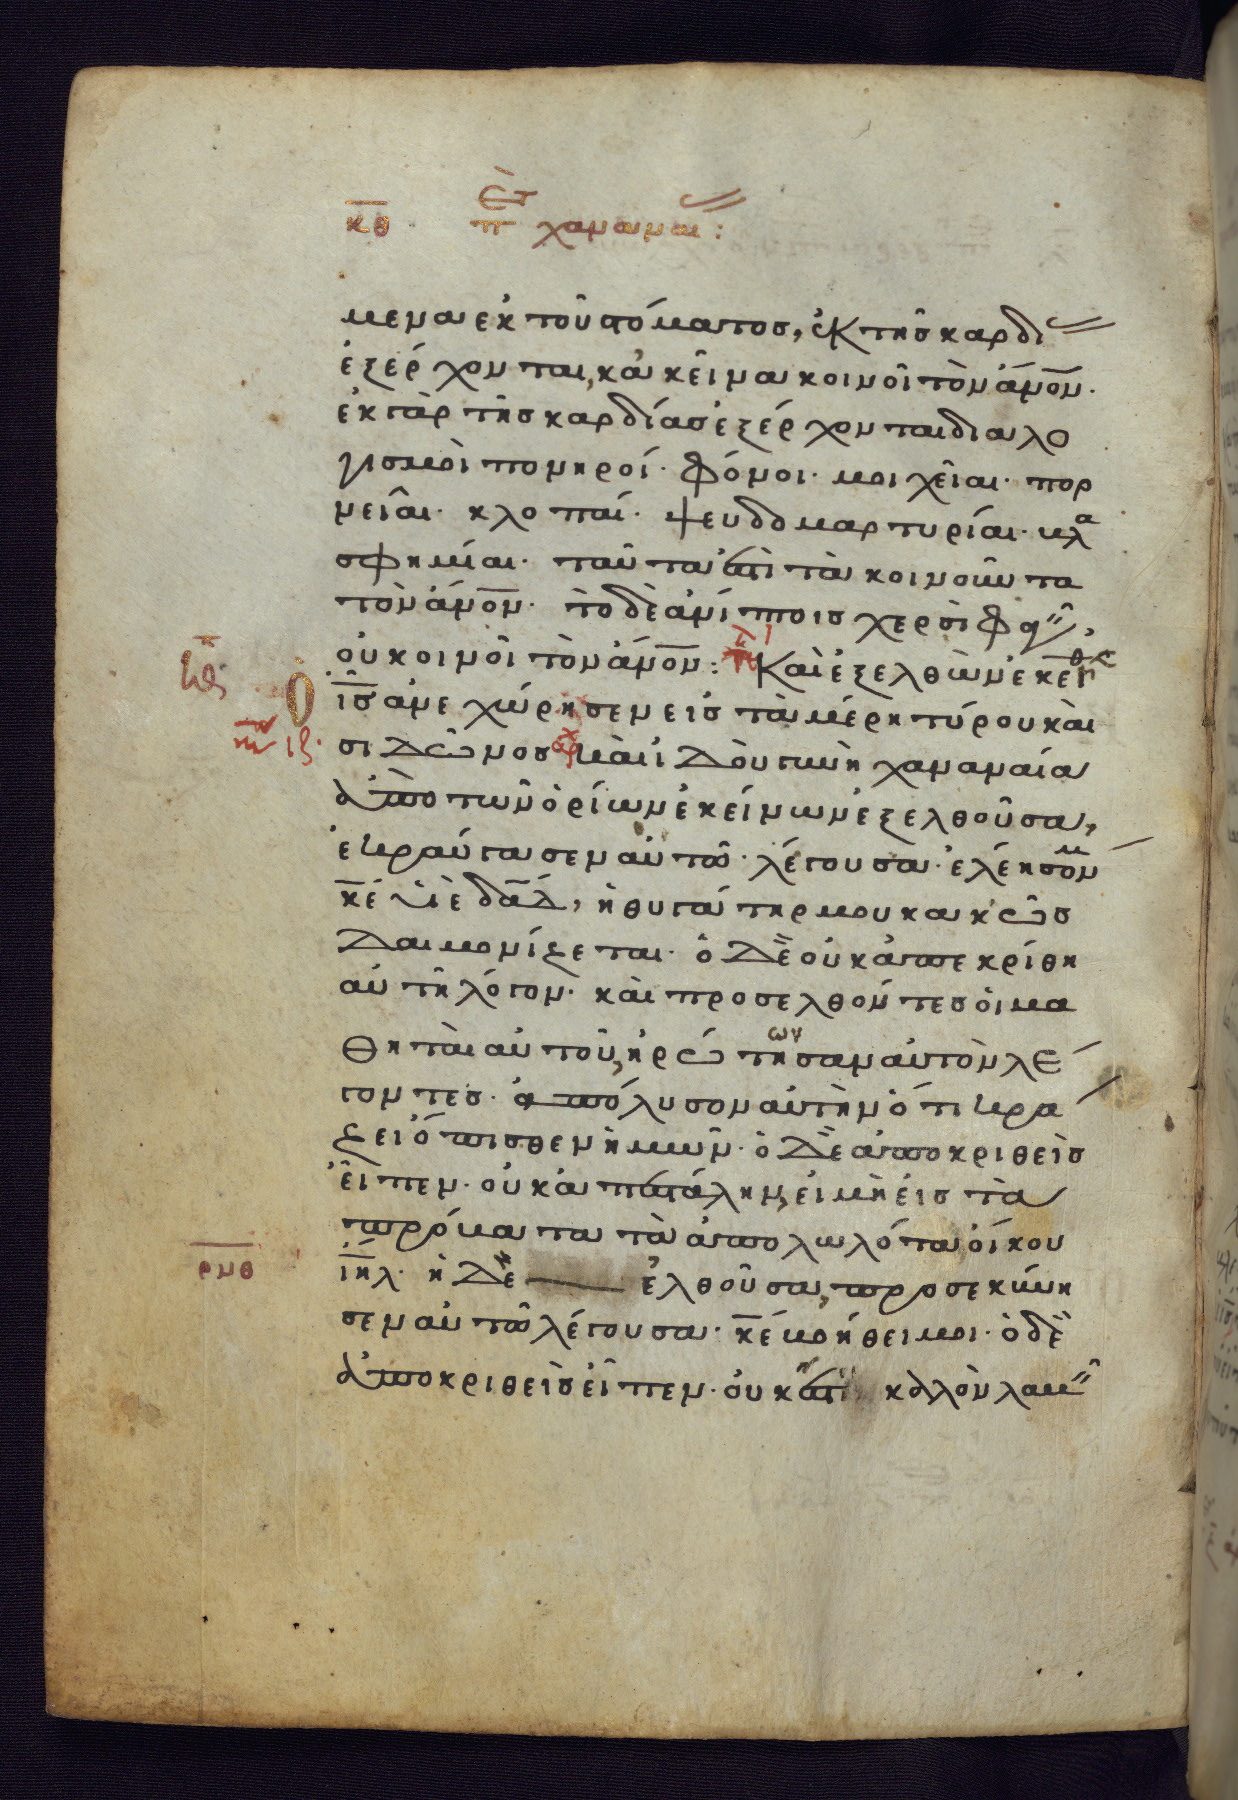 κθ π ετ χαναναι :
μενα εκ του στόματος, ἐκ της καρδι
ἐξέρχονται, κἀκεῖνα κοινοῖ τὸν ἄνον.
ἐκ γὰρ τῆς καρδίας ἐξέρχονται διαλο
γισμοὶ πονηροί. φόνοι. μοιχεῖαι. πορ
νεῖαι. κλοπαί. ψευδομαρτυρίαι. βλα
σφημίαι. ταῦτα ἐστὶ τὰ κοινοῦντα
τὸν ἄνον. τὸ δὲ ἀνίπτοις χερσὶ φαγεῖν,
οὐ κοινοῖ τὸν ἄνον : Καὶ ἐξελθὼν ἐκεῖθεν
ὁ ις ἀνεχώρησεν εἰς τὰ μέρη τύρου καὶ
σιδῶνος καὶ ἰδοὺ γυνὴ χαναναία
ἀπὸ τῶν ὁρίων ἐκείνων ἐξελθοῦσα,
ἐκραύγασεν αὐτῶ. λέγουσα. ἐλέησόν μ
κε υἱὲ δαδ, ἡ θυγάτηρ μου κακῶς
δαιμονίζεται. ὁ δὲ οὐκ ἀπεκρίθη
αὐτῆ λόγον. καὶ προσελθόντες οἱ μα
θηταὶ αὐτοῦ, ἠρώτησαν αὐτὸν λέ
ων
γοντες. ἀπόλυσον αὐτὴν ὅτι κρά
ζει ὄπισθεν ἡμῶν. ὁ δὲ ἀποκριθεὶς
εἶπεν. οὐκ ἀπεστάλην, εἰ μὴ εἰς τὰ
πρόβατα τὰ ἀπολωλότα οἴκου
ρνθ
ιηλ. ἡ δὲ ἐλθοῦσα, προσεκύνη
σεν αὐτῶ λέγουσα. κε βοήθει μοι. ὁ δὲ
ἀποκριθεὶς εἶπεν. οὐκ ἔστι καλὸν λαβεῖν